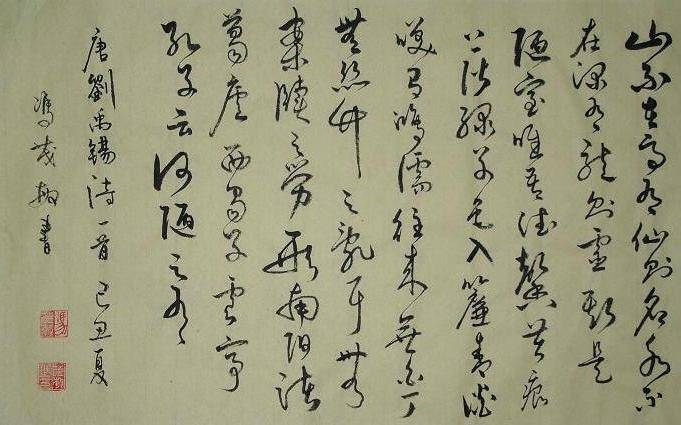 山不在高有仙則名水不
在深有龍則靈斯是
陋室唯吾德馨苔痕
上階綠草色入簾青談
笑有鴻儒往來無白丁
無絲竹之亂耳無
案牘之勞形南陽諸
葛廬西蜀子雲亭
孔子云何陋之有
唐劉禹錫詩一首 己丑夏
馮茂書